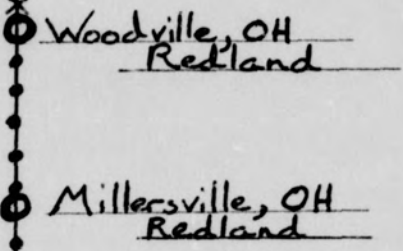 Woodville, OH
Redland
Millersville, OH
Redland